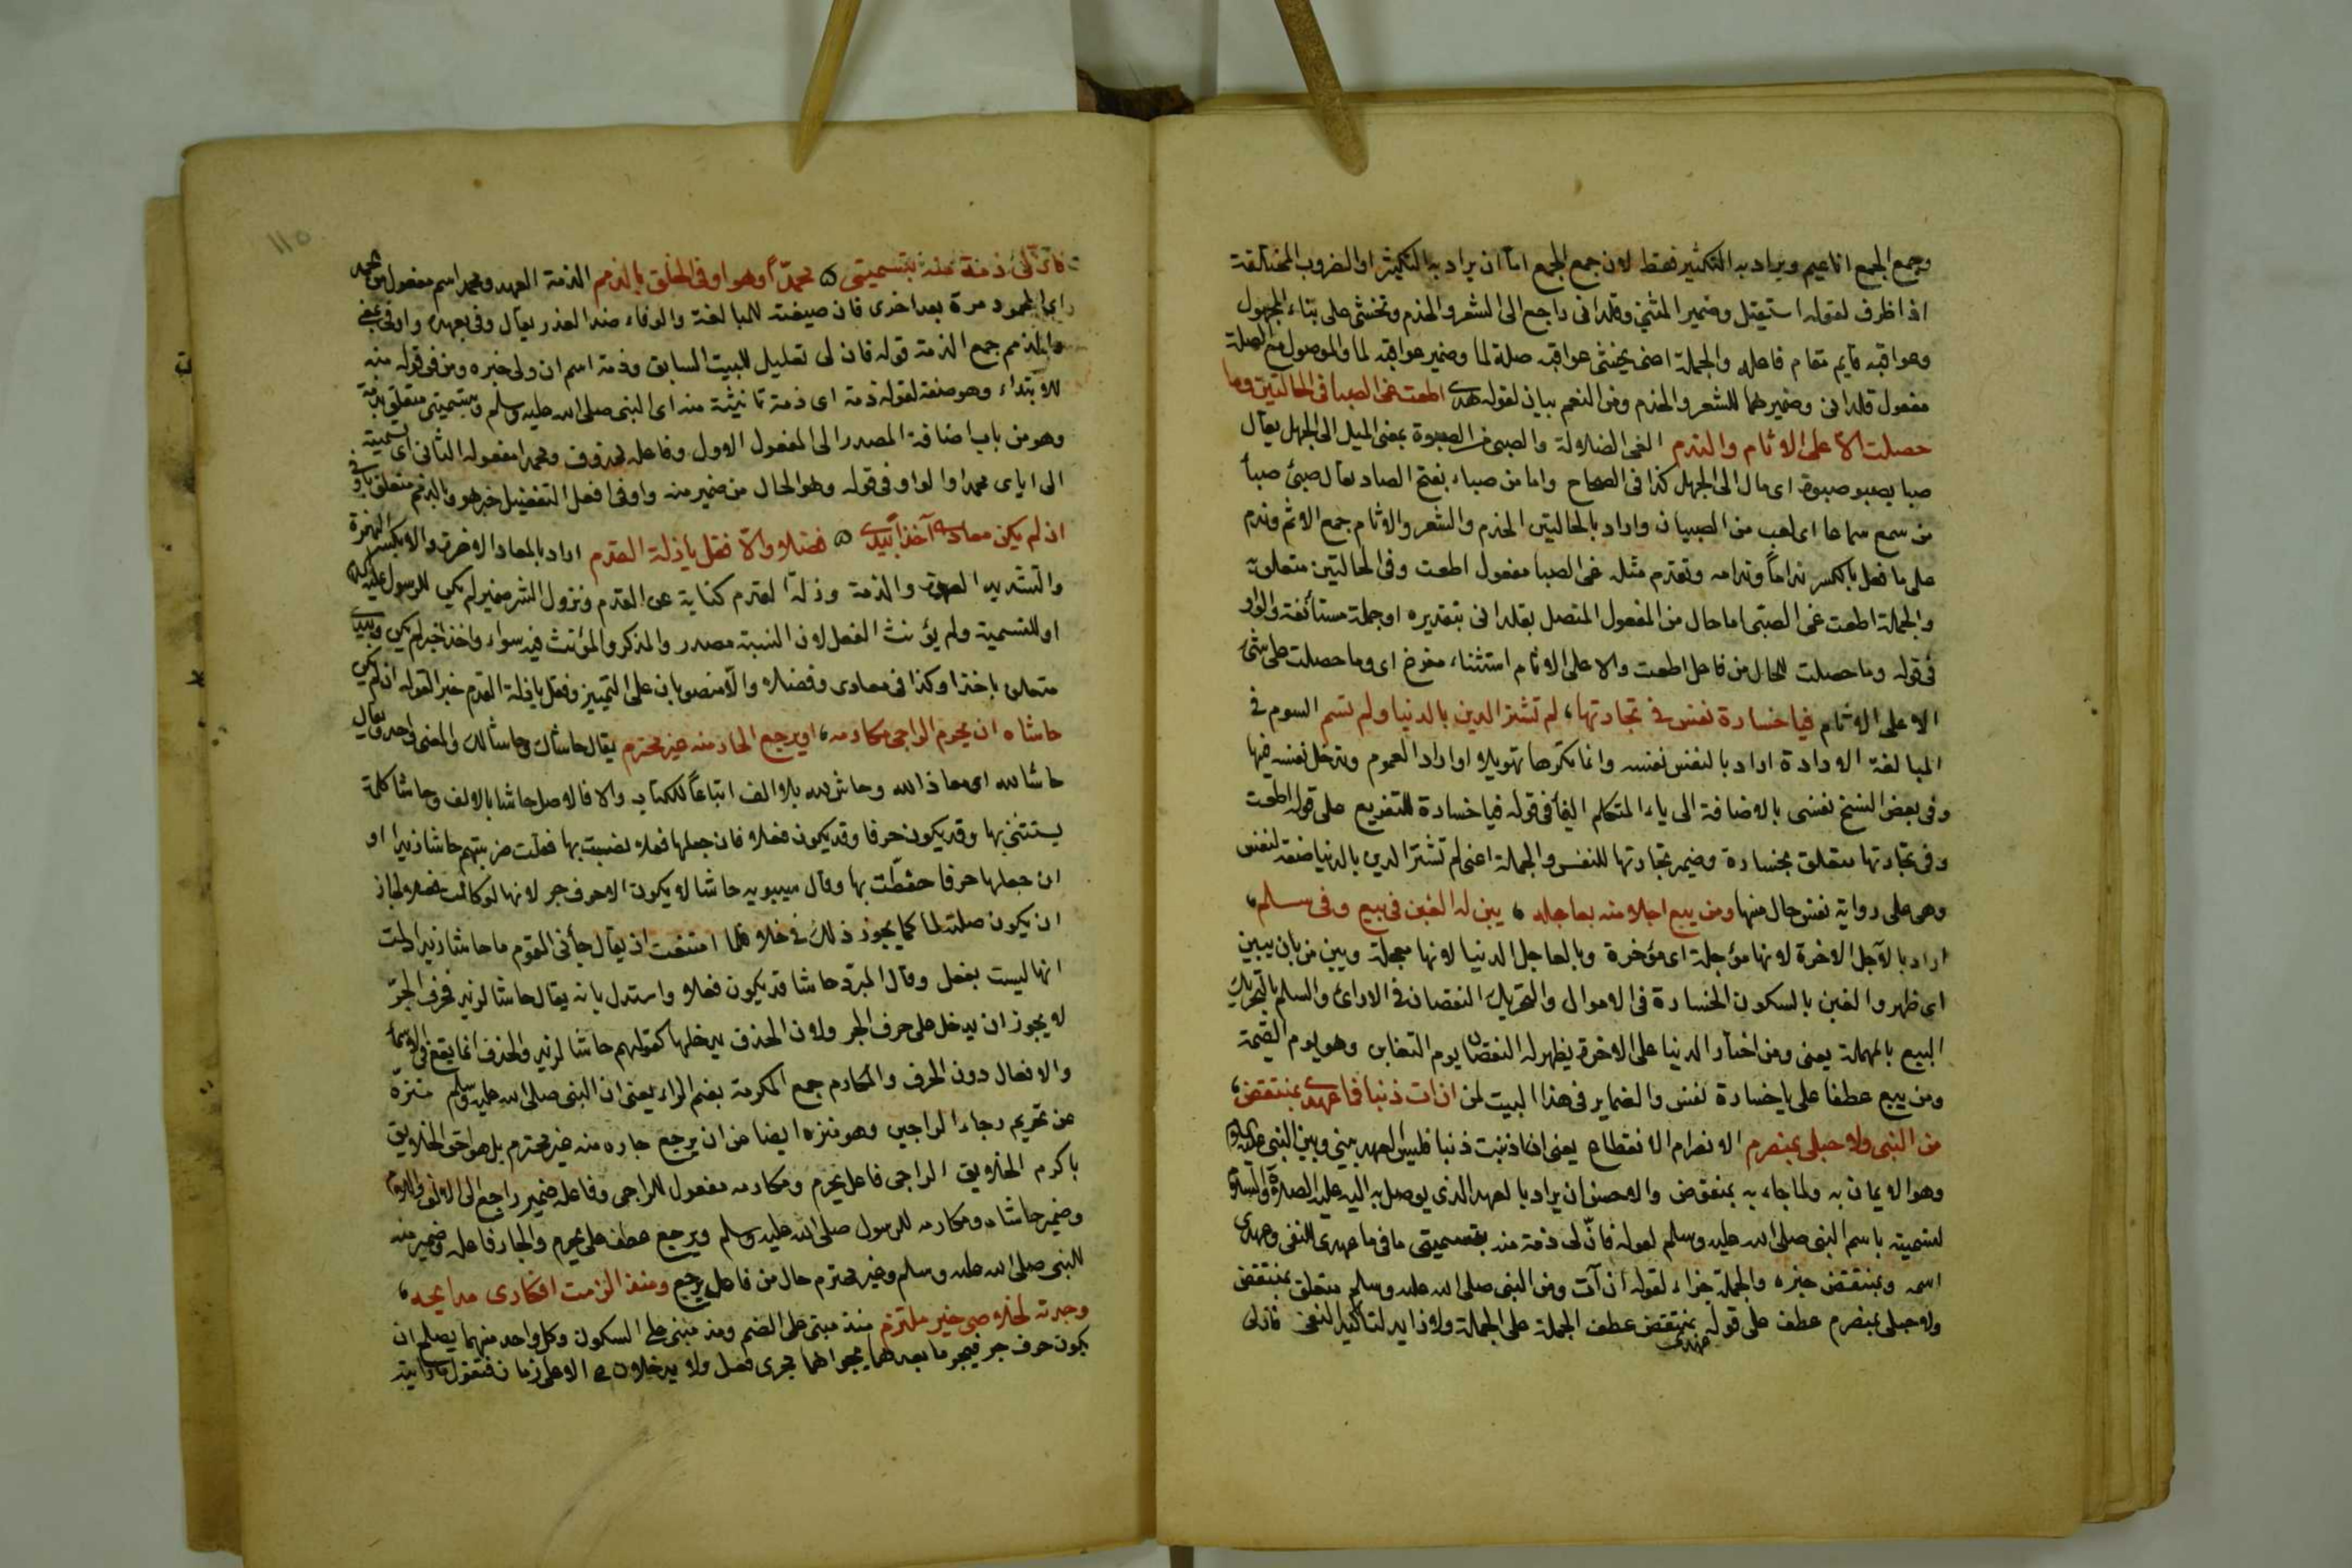 وجمع الجمع اناعيم ويراد به التكثير فقط لان جمع الجمع اما ان يراد به التكثير او الضروب المختلفة
اذا ظرف لقوله استقبل وضمير المثنى وقلدانى راجع الى الشعر والخدم وتخشى على بناء المجهول
وعواقبه قايم مقام فاعله والجملة اعنى يخشى عواقبه صلة لما وضمير عواقبه لما والموصول مع الصلة
مفعول قلدانى وضمير هما للشعر والخدم ومن النعم بيان لقوله هدى اطعت غى الصبا فى الحالتين وما
حصلت الا على الاثام والندم الغى الضلالة والصبى من الصبوة بمعنى الميل الى الجهل يقال
صبا يصبو صبوة اى مال الى الجهل كذا فى الصحاح واما من صباء بفتح الصاد يقال صبئ صبأ
من سمع سماعا اى لعب من الصبيان واراد بالحالتين الخدم والشعر والاثام جمع الاثم وندم
على ما فعل بالكسر ندامًا وندامه وتقدم مثله غى الصبا مفعول اطعت وفى الحالتين متعلق
والجملة اطعت غى الصبى اما حال من المفعول المتصل بقلدانى بتقديره او جملة مستأنفة والواو
فى قوله وما حصلت للحال من فاعل اطعت والا على الاثام استثناء مفرغ اى وما حصلت على شئ
الا على الاثام فيا خسارة نفس فى تجارتها، لم تشتر الدين بالدنيا ولم تسم السوم فى
المبالغة الارادة اراد بالنفس نفسه وانما نكرها تهويلا او اراد العموم ويدخل نفسه فيها
وفى بعض النسخ نفسى بالاضافة الى ياء المتكلم الفأ فى قوله فيا خسارة للتفريع على قوله اطعت
وفى تجارتها متعلق بخسارة وضمير تجارتها للنفس والجملة اعنى لم تشتر الدين بالدنيا صفة لنفس
وهى على رواية نفس حال منها ومن يبع اجلا منه بعاجله ، يبن له الغبن فى بيع وفى سلم،
اراد بالآجل الاخرة لانها مؤجلة اى مؤخرة وبالعاجل الدنيا لانها معجلة ويبن من بان يبين
اى ظهر والغبن بالسكون الخسارة فى الاموال والتحريك النقصان فى الارائ والسلم بالتحريك
البيع بالمهملة يعنى ومن اختار الدنيا على الاخرة يظهر له النقصان يوم التغابن وهو يوم القيمة
ومن يبع عطفا على يا خسارة نفس والضماير فى هذا البيت لمن ان ات ذنبا فما عهدى بمنتقض،
من النبى ولا حبلى بمنصرم الانصرام الانقطاع يعنى اذا ذنبت ذنبا فليس العهد بينى وبين النبى عليه
وهو الايمان به ولما جاء به بمنقوض والاحسن ان يراد بالعهد الذى يوصل به اليه عليه الصلاة والسلام
لتسميته باسم النبى صلى الله عليه وسلم لقوله فان لى ذمة منه بتسميتى ما فى ما عهدى للنفى وعهدى
اسمه وبمنتقض خبره والجملة جزاء لقوله ان آت ومن النبى صلى الله عليه وسلم متعلق بمنتقض
ولا حبلى بمنصرم عطف على قوله بمنتقض عطف الجملة على الجملة ولا زايد لتاكيد النفى فان لى
عهدى
١١٥
فان لى ذمة منه بتسميتى محمدًا وهو اوفى الخلق بالذمم الذمة العهد ومحمد اسم مفعول من
اى المحمود مرة بعد اخرى فان صيغته للمبالغة والوفاء ضد الغدر يقال وفى بعهده واوفى بمعنى
والذمم جمع الذمة قوله فان لى تعليل للبيت السابق وذمة اسم ان ولى خبره ومن فى قوله منه
للابتداء وهو صفة لقوله ذمة اى ذمة ناشئة منه اى النبى صلى الله عليه وسلم وبتسميتى متعلق بذمة
وهو من باب اضافة المصدر الى المفعول الاول وفاعله محذوف ومحمدا مفعوله الثانى اى تسميته
الى اياى محمدا والواو فى قوله وهو الحال من ضمير منه واوفى افعل التفضيل خبر هو وبالذمم متعلق باوفى
ان لم يكن معادى آخذًا بيدى فضلا والا فقل يا ذلة القدم اراد بالمعاد الاخرة والا بكسر الهمزة
والتشديد العهد والذمة وذلة القدم كناية عن القدم ونزول الشر ضمير لم يكن للرسول عليه
او للتسمية ولم يؤنث الفعل لان النسبة مصدر والمذكر والمؤنث فيه سواء واخذا خبر لم يكن وبيدى
متعلق باخذا وكذا فى معادى وفضلا والا منصوبان على التمييز وفقل يا ذلة القدم خبر لقوله ان لم يكن
حاشاه ان يحرم الراجى مكارمه، او يرجع الجار منه غير محترم يقال حاشاك وحاشا لك والمعنى واحد ويقال
حاشا لله اى معاذ الله وحاش لله بلا الف اتباعًا للكتاب والا فالاصل حاشا بالالف وحاشا كلمة
يستثنى بها وقد يكون حرفا وقد يكون فعلا فان جعلها فعلا نصبت بها فقلت ضربتهم حاشا زيدا او
ان جعلها حرفا خفضت بها وقال سيبويه حاشا لا يكون الا حرف جر لانها لو كانت فعلا لجاز
ان يكون صلة لما كما يجوز ذلك فى خلا فلما امتنعت ان يقال جأنى القوم ما حاشا زيدا دلت
انها ليست بفعل وقال المبرد حاشا قد يكون فعلا واستدل بانه يقال حاشا لزيد فحرف الجر
لا يجوز ان يدخل على حرف الجر ولان الحذف يدخلها كقولهم حاشا لزيد والحذف انما يقع فى الاسماء
والافعال دون الحرف والمكارم جمع المكرمة بضم الراء يعنى ان النبى صلى الله عليه وسلم منزه
عن تحريم رجاء الراجين وهو منزه ايضا عن ان يرجع جاره منه غير محترم بل هو احق الخلايق
باكرم الخلايق الراجى فاعل يحرم ومكارمه مفعول للراجى وفاعله ضمير راجع الى الاولى
وضمير حاشاه ومكارمه للرسول صلى الله عليه وسلم ويرجع عطف على يحرم والجار فاعله وضمير منه
للنبى صلى الله عليه وسلم وغير محترم حال من فاعل يرجع ومنذ الزمت افكارى مدايحه،
وجدته لخلاصى خير ملتزم منذ مبنى على الضم ومذ مبنى على السكون وكل واحد منهما يصلح ان
يكون حرف جر فيجر ما بعدهما ويجراهما مجرى فعل ولا يدخلان الا على زمان فتقول ما رايته